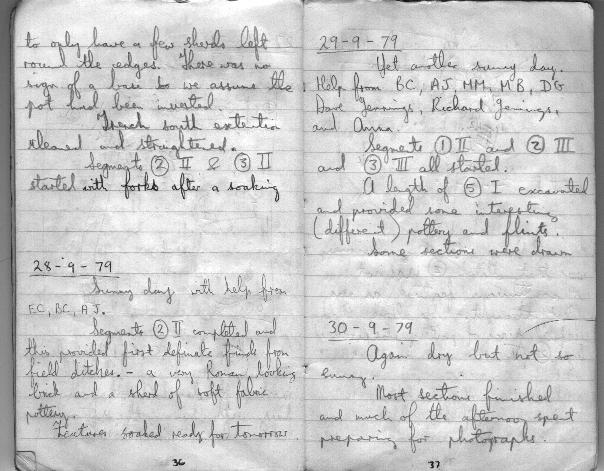 to only have a few sherds left
round the edges. There was no
sign of a base so we assume the
pot had been inverted.
Trench south extention
cleaned and straightened.
Segments ② II & ③ II
started with forks after a soaking
28-9-79
Sunny day with help from
EC, BC, AJ.
Segments ② II completed and
this provided first definate finds from
field ditches. - a very Roman looking
brick and a sherd of soft fabric
pottery.
Features soaked ready for tomorrow.
36
29-9-79
Yet another sunny day.
Help from BC, AJ, MM, MB, DG
Dave Jennings, Richard Jennings,
and Anna.
Segments ① II and ② III
and ③ III all started.
A length of ⑤ I excavated
and provided some interesting
(different) pottery and flints.
Some sections were drawn
30-9-79
Again dry but not so
sunny.
Most sections finished
and much of the afternoon spent
preparing for photographs.
37